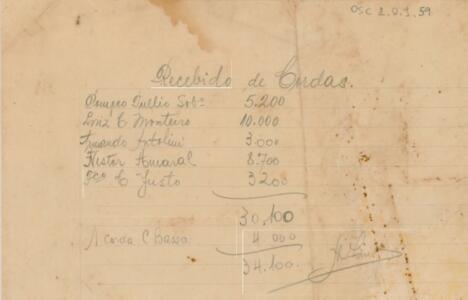 OSC 2.0.1.59
Recebido de Cordas.
Pompeo Tullio Sobº 5.200
Luiz C. Monteiro 10.000
Fernando Artolini 3.000
Nestor Amaral 8.700
Fcº C Justo 3200
30,100
1 Corda C Basso 4 000
34.100.